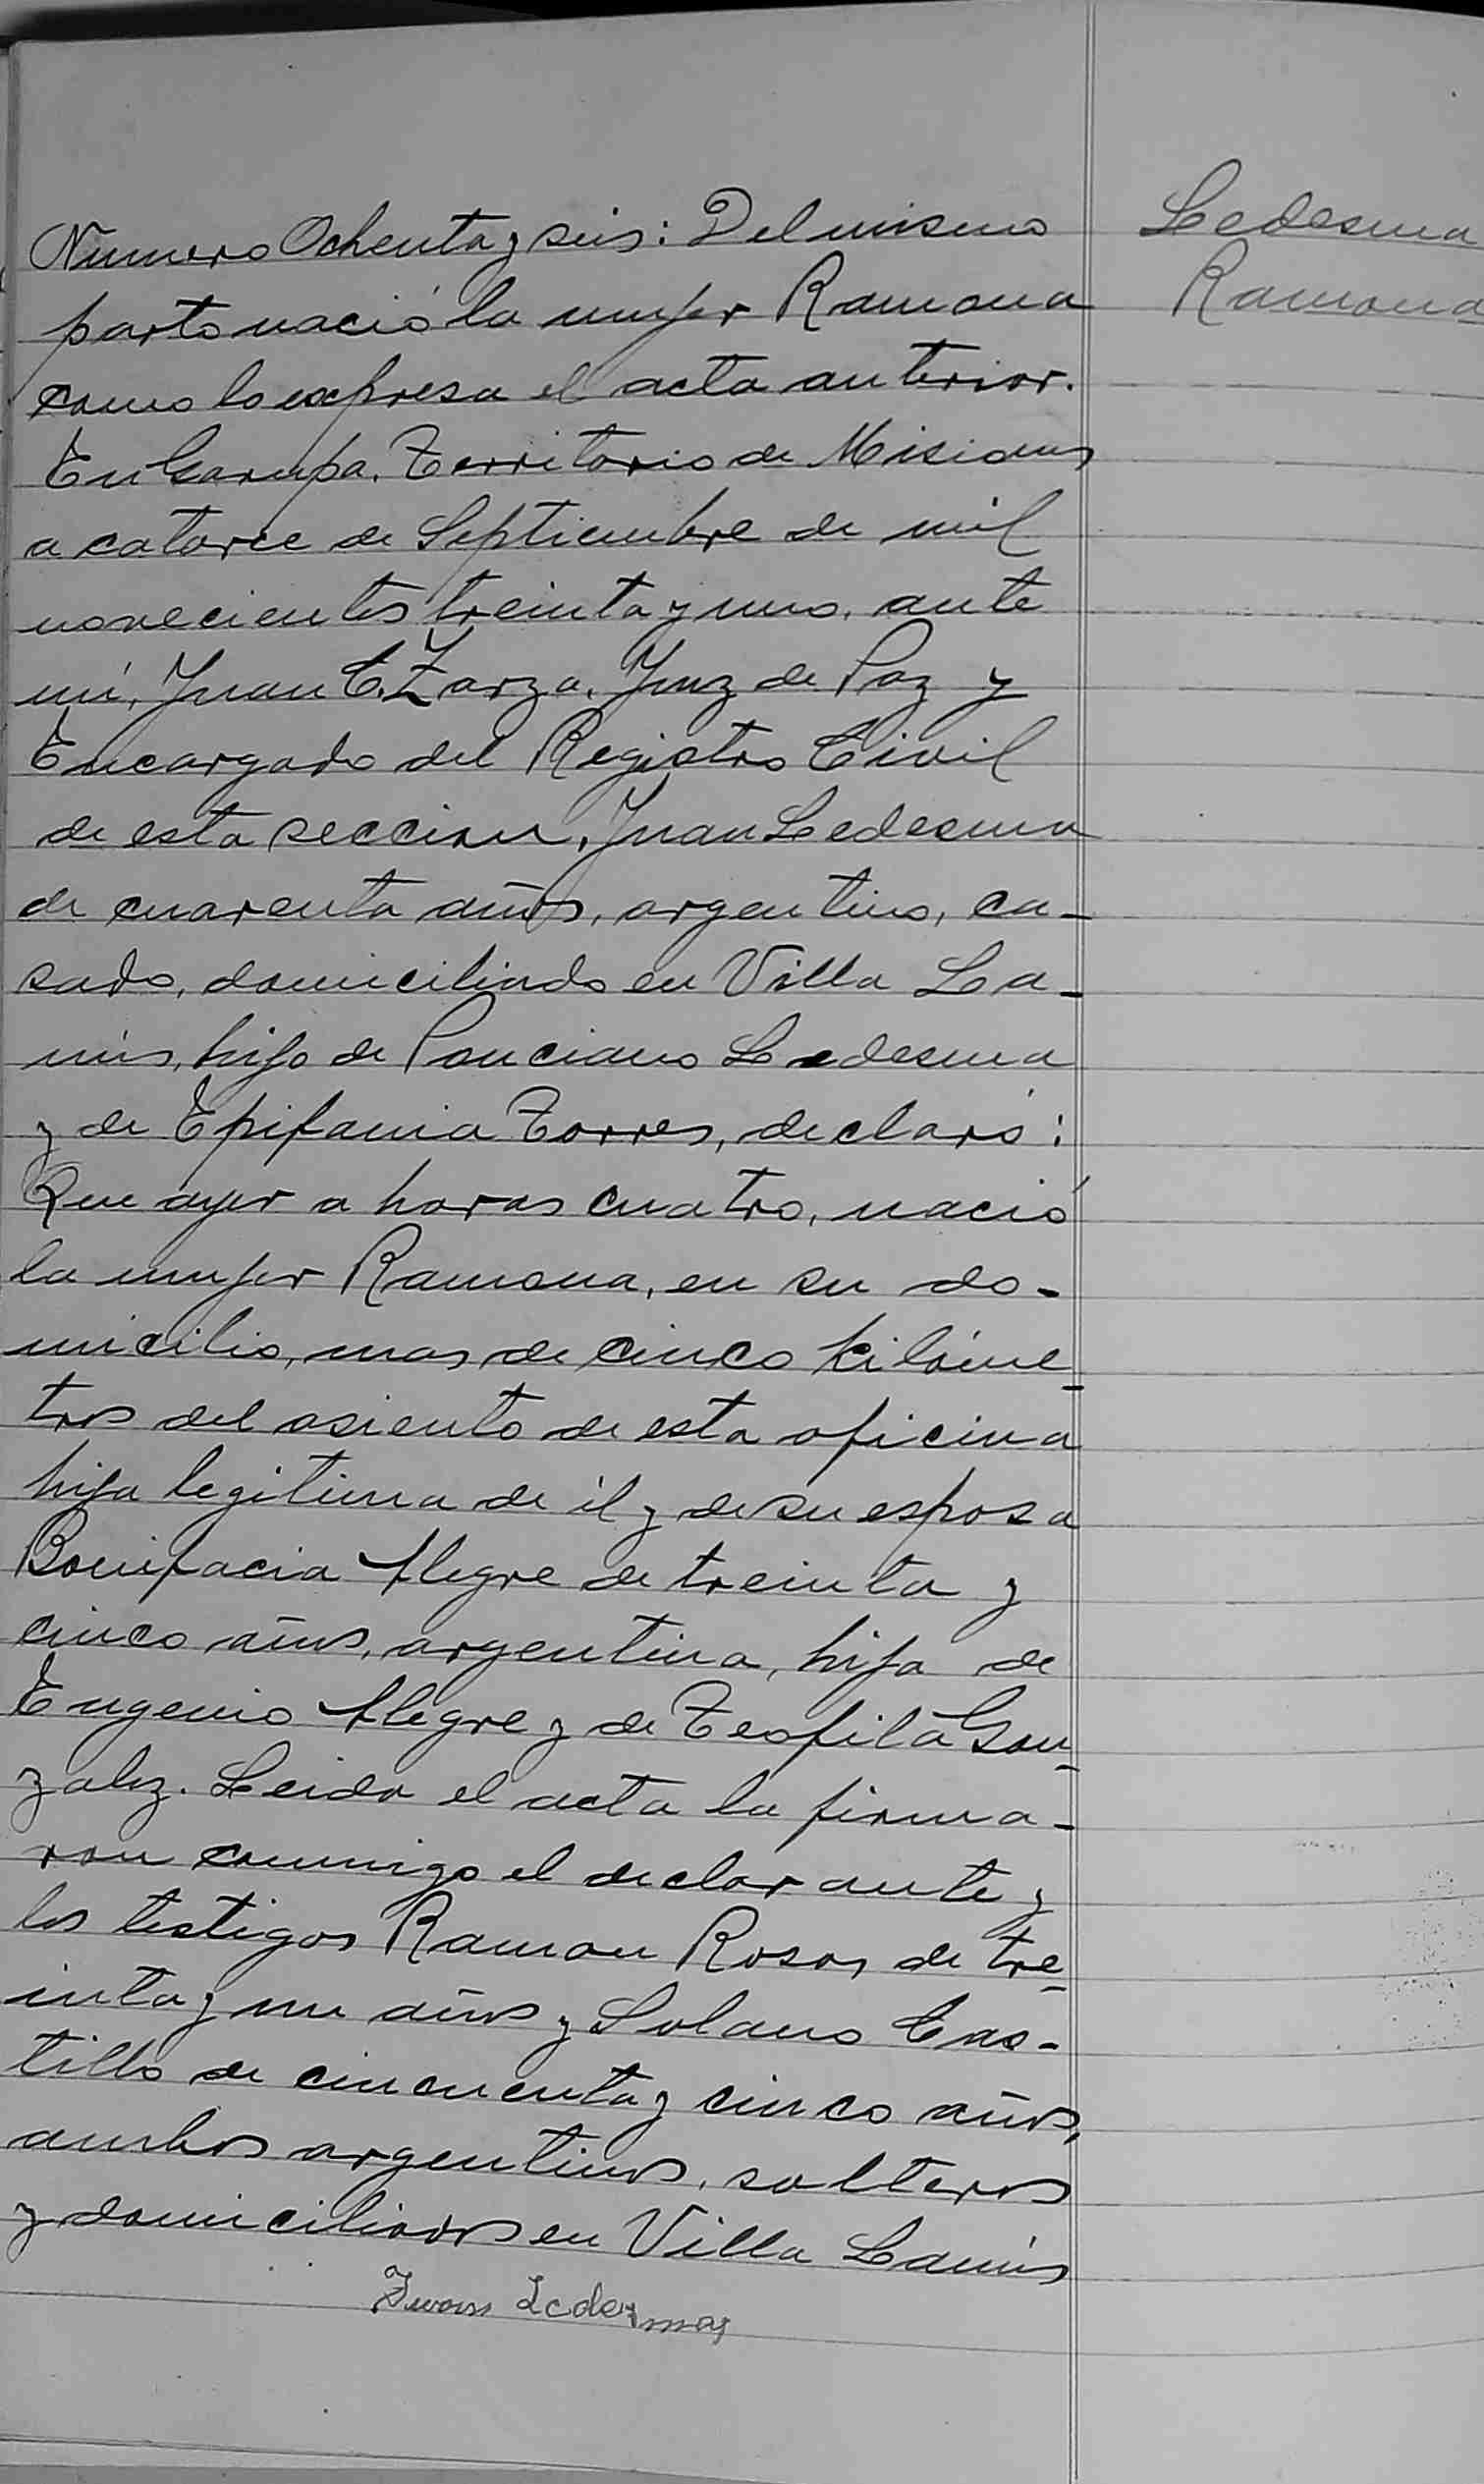 Ledesma
Ramona
Numero Ochenta y seis: Del mismo
parto nació la mujer Ramona
como lo expresa el acta anterior.
En Garupa. Territorio de Misiones
a catorce de Septiembre de mil
novecientos treinta y uno, ante
mí, Juan C. Zarza, Juez de Paz y
Encargado del Registro Civil
de esta seccion, Juan Ledesma
de cuarenta años, argentino, ca-
sado, domiciliado en Villa La-
nús, hijo de Ponciano Ledesma
y de Epifania Torres, declaró:
Que ayer a horas cuatro, nació
la mujer Ramona, en su do-
micilio, mas de cinco kilóme-
tros del asiento de esta oficina
hija legitima de él y de su esposa
Bonifacia Alegre de treinta y
cinco años, argentina, hija de
Eugenio Alegre y de Teofila Gon-
zalez. Leida el acta la firma-
ron conmigo el declarante y
los testigos Ramon Rosas de tre-
inta y un años y Solano Cas-
tillo de cincuenta y cinco años,
ambos argentinos, solteros
y domiciliados en Villa Lanús
Juan Ledesma